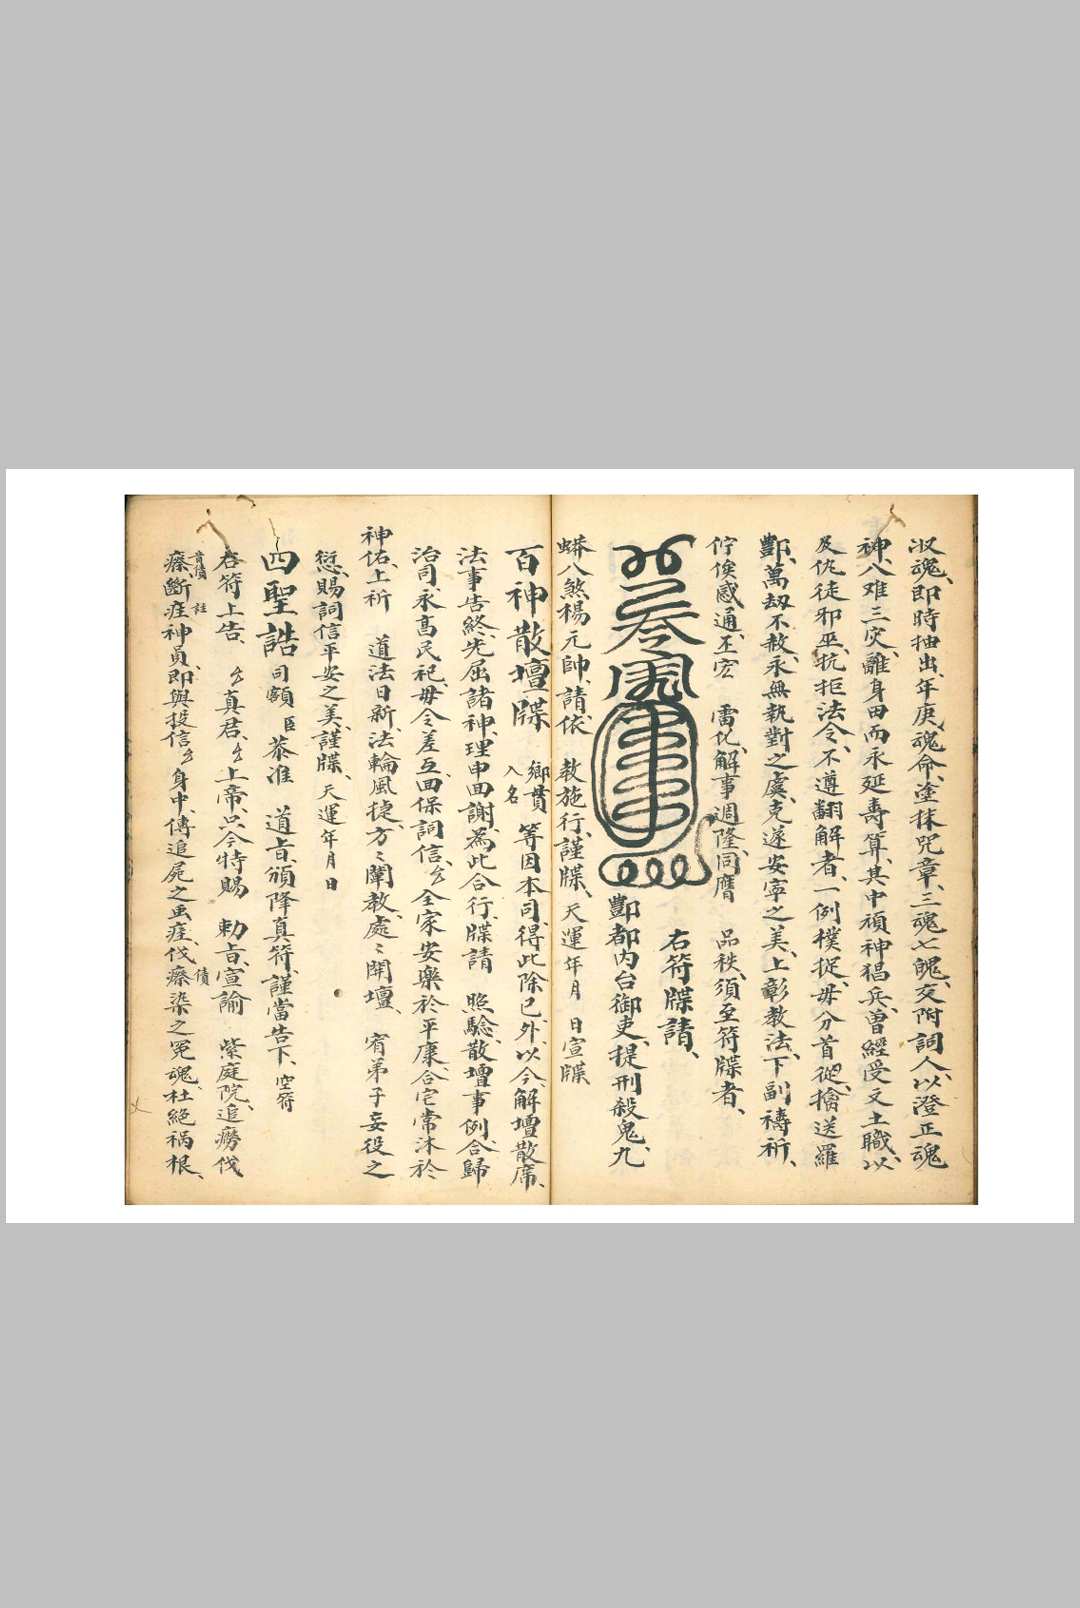 汝魂、即時抽出、年庚、魂命、塗抹咒章、三魂七魄、交附詞人、以澄正魂
神、八难三灾、離身田而永延壽算、其中頑神猖兵、曽經受文土職、以
及仇徒邪巫、抗拒法令、不遵翻解者、一例樸捉、毋分首從、擒送羅
酆、萬刼不赦、永無執對之虞、克遂安寧之美、上彰教法、下副禱祈、
佇俟感通、丕宏　雷化、解事週隆、同膺　品秩、須至符牒者、
右符牒請、
酆都內台御吏、提刑殺鬼、九
蟒八煞楊元帥、請依　教施行、謹牒、天運年月　日宣牒
百神散壇牒　鄉貫入名　等因本司、得此除已外、以今、解壇散席、
法事告終、先屈諸神、理申回謝、為此合行、牒請　照驗、散壇事例、合歸
治司、永髙民祀、毋令差互、回保詞信、厶　全家安樂於平康、合宅常沐於
神佑、上祈　道法日新、法輪風捷、方〻闡教、處〻開壇、宥弟子妄役之
愆、賜詞信平安之美、謹牒、天運年月日
四聖誥　司額　臣　恭准　道旨、頒降真符、謹當告下、空符
右符上告、厶真君、厶上帝、只今特賜　勅旨、宣諭　紫庭院、追癆伐
瘵斷疰神員、即與投信厶身中、傳追屍之虫疰、伐瘵染之冤魂、杜絕禍根、